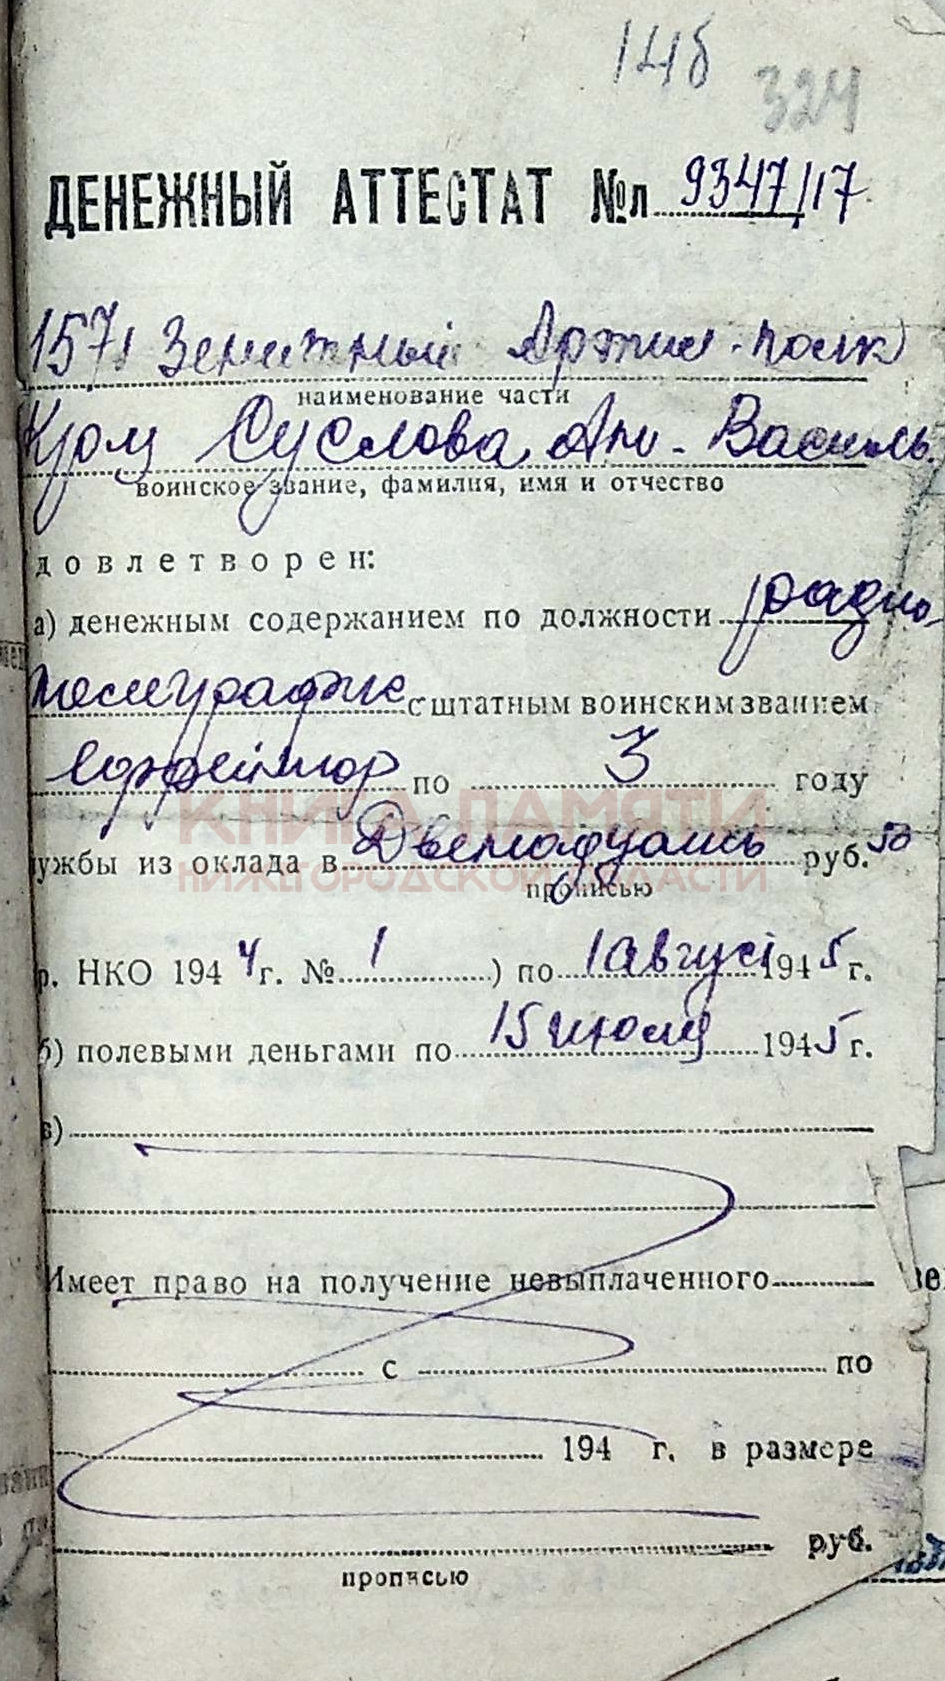 146
324
ДЕНЕЖНЫЙ АТТЕСТАТ №л 9347/17
1571 Зенитный Артил. полк
наименование части
Суслова Ан. Василь.
воинское звание, фамилия, имя и отчество
довлетворен:
а) денежным содержанием по должности радио-
телеграфис с штатным воинским званием
ефрейтор по 3 году
ужбы из оклада в Двенадцать руб. 50
прописью
КНИГА ПАМЯТИ
НИЖЕГОРОДСКОЙ ОБЛАСТИ
р. НКО 1944 г. № 1 ) по 1 август 1945 г.
б) полевыми деньгами по 15 июля 1945 г.
в)
Имеет право на получение невыплаченного
с по
194 г. в размере
руб.
прописью